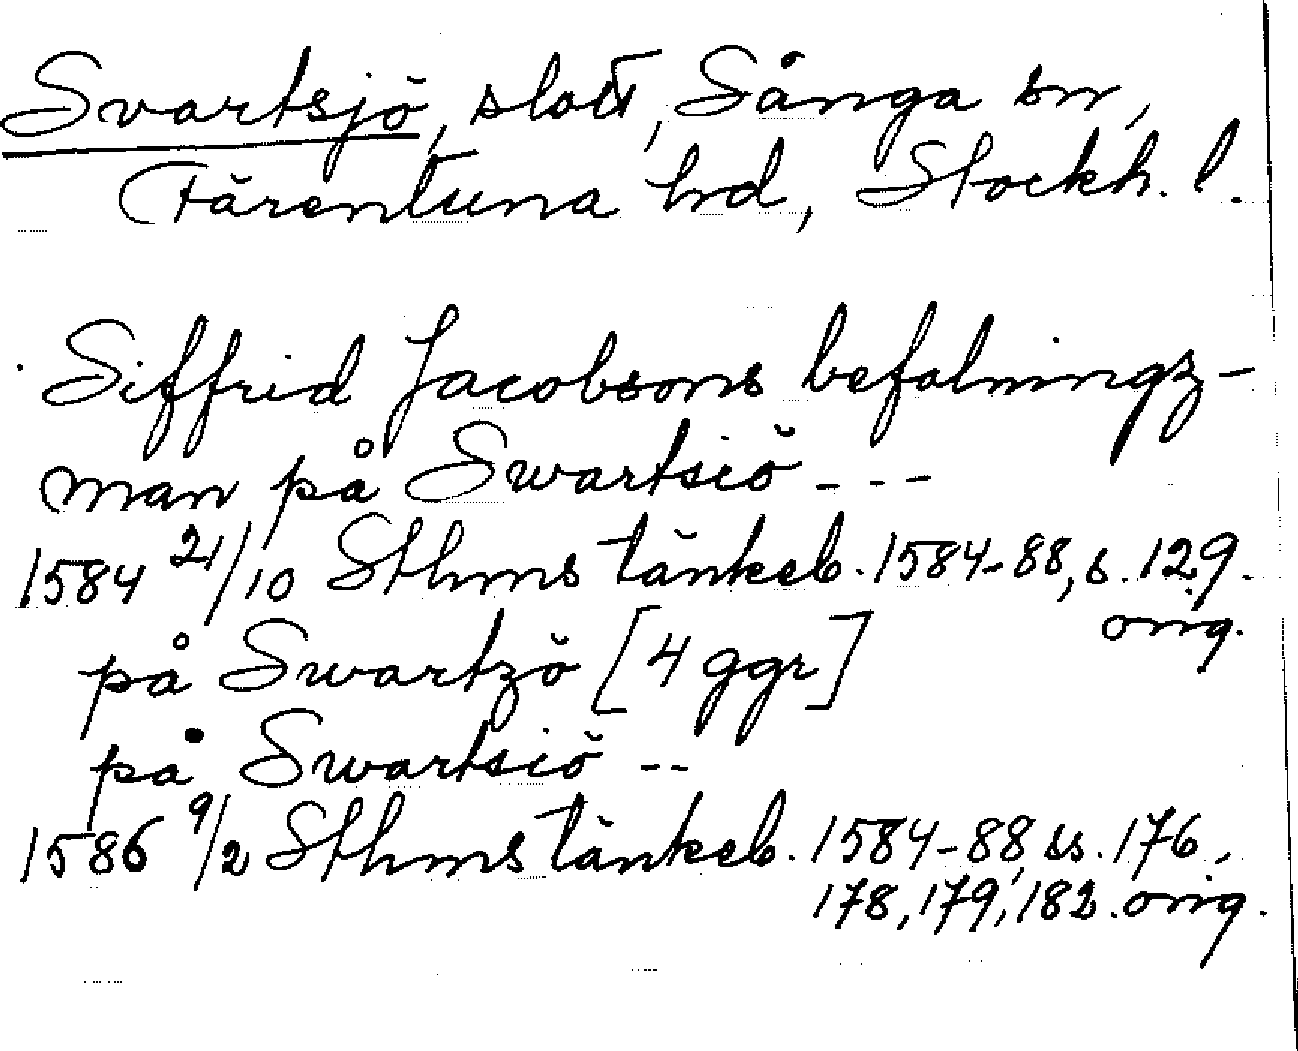 Svartsjö, slott, Sånga sn,
Färentuna hrd, Stockh. l.
Siffrid Jacobsons befalningz-
man på Swartsiö - - -
1584 21/10 Sthms tänkeb. 1584-88, s. 129.
orig.
på Swartzö [4 ggr]
på Swartsiö --
1586 9/2 Sthms tänkeb. 1584-88, ss. 176,
178, 179, 182. orig.